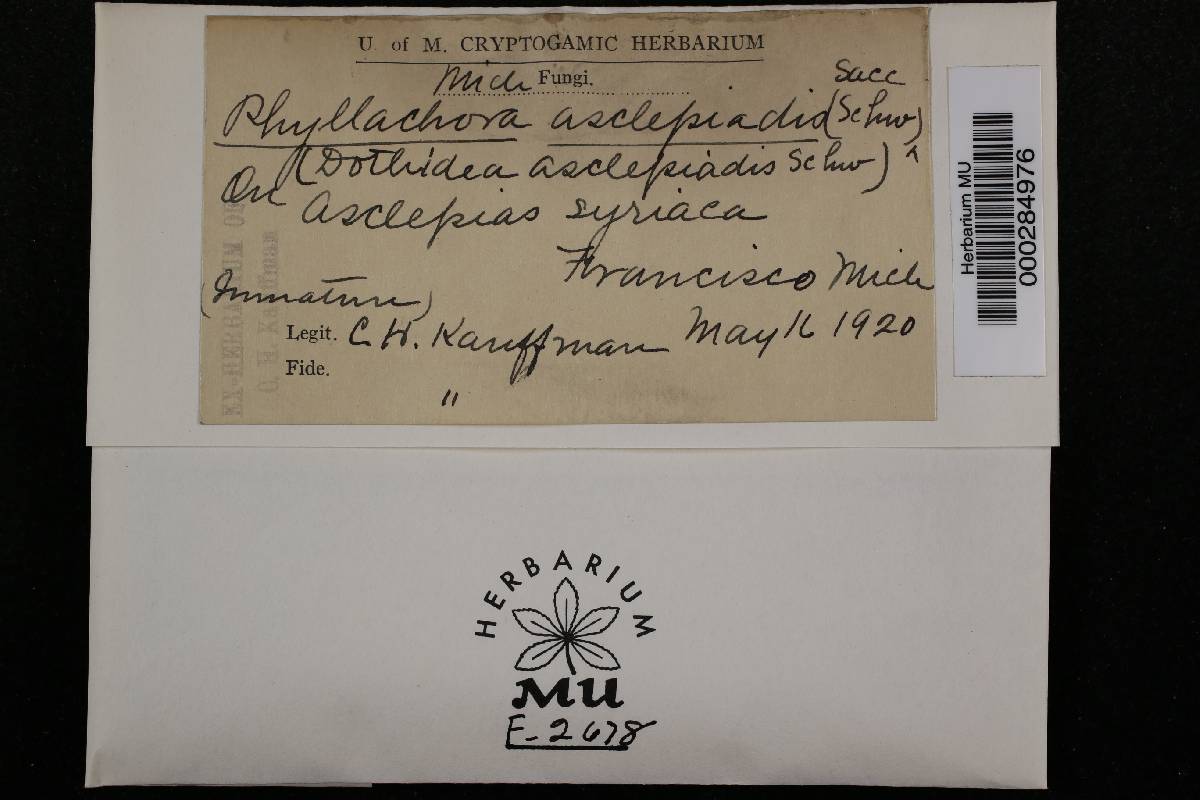 U. of M. CRYPTOGAMIC HERBARIUM
Mich Fungi.
Phyllachora asclepiadis (Schw) ^ Sacc
(Dothidea asclepiadis Schw)
On Asclepias syriaca
Francisco Mich
(Immature)
Legit. C H. Kauffman May 16 1920
Fide. "
EX-HERBARIUM OF
C. H. Kauffman
Herbarium MU
000284976
HERBARIUM
MU
F-2678